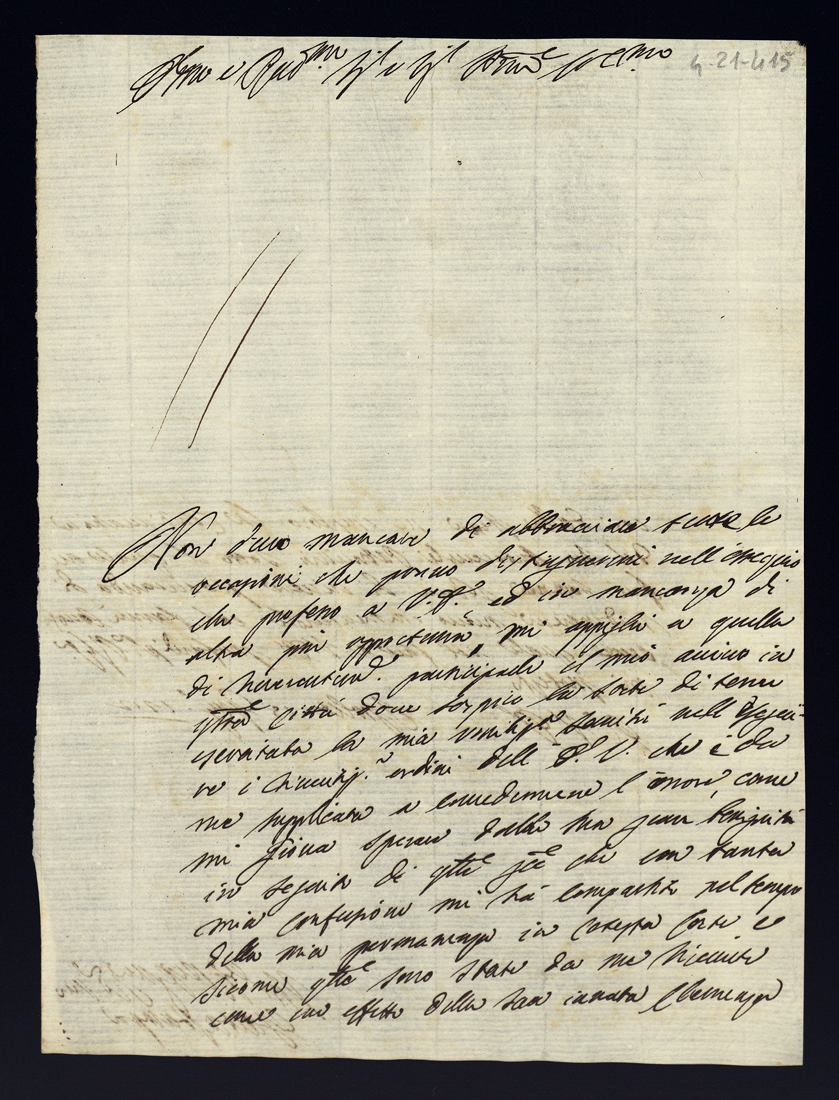 Ill.mo e Rev.mo Sig.r Sig.r P.rone Col.mo
4-21-415
Non devo mancare di abbracciare tutte le
occasioni che ponno distinguermi nell'ossequio
che professo a V. S. ed in mancanza di
altra più opportuna, mi appiglio a quella
di participarle il mio arrivo in
q.ta Città dove sospiro la sorte di tener
esercitata la mia servitù nell'esequi-
re i ordini dell' V. che è da
me supplicata a concedermene l'onore, come
mi giova sperare dalla sua gran benignità
in seguito di q.lle che con tanta
mia confusione mi hà compartite nel tempo
della mia permanenza in cotesta Corte e
sicome q.lle sono state da me ricevute
come un effetto della sua innata